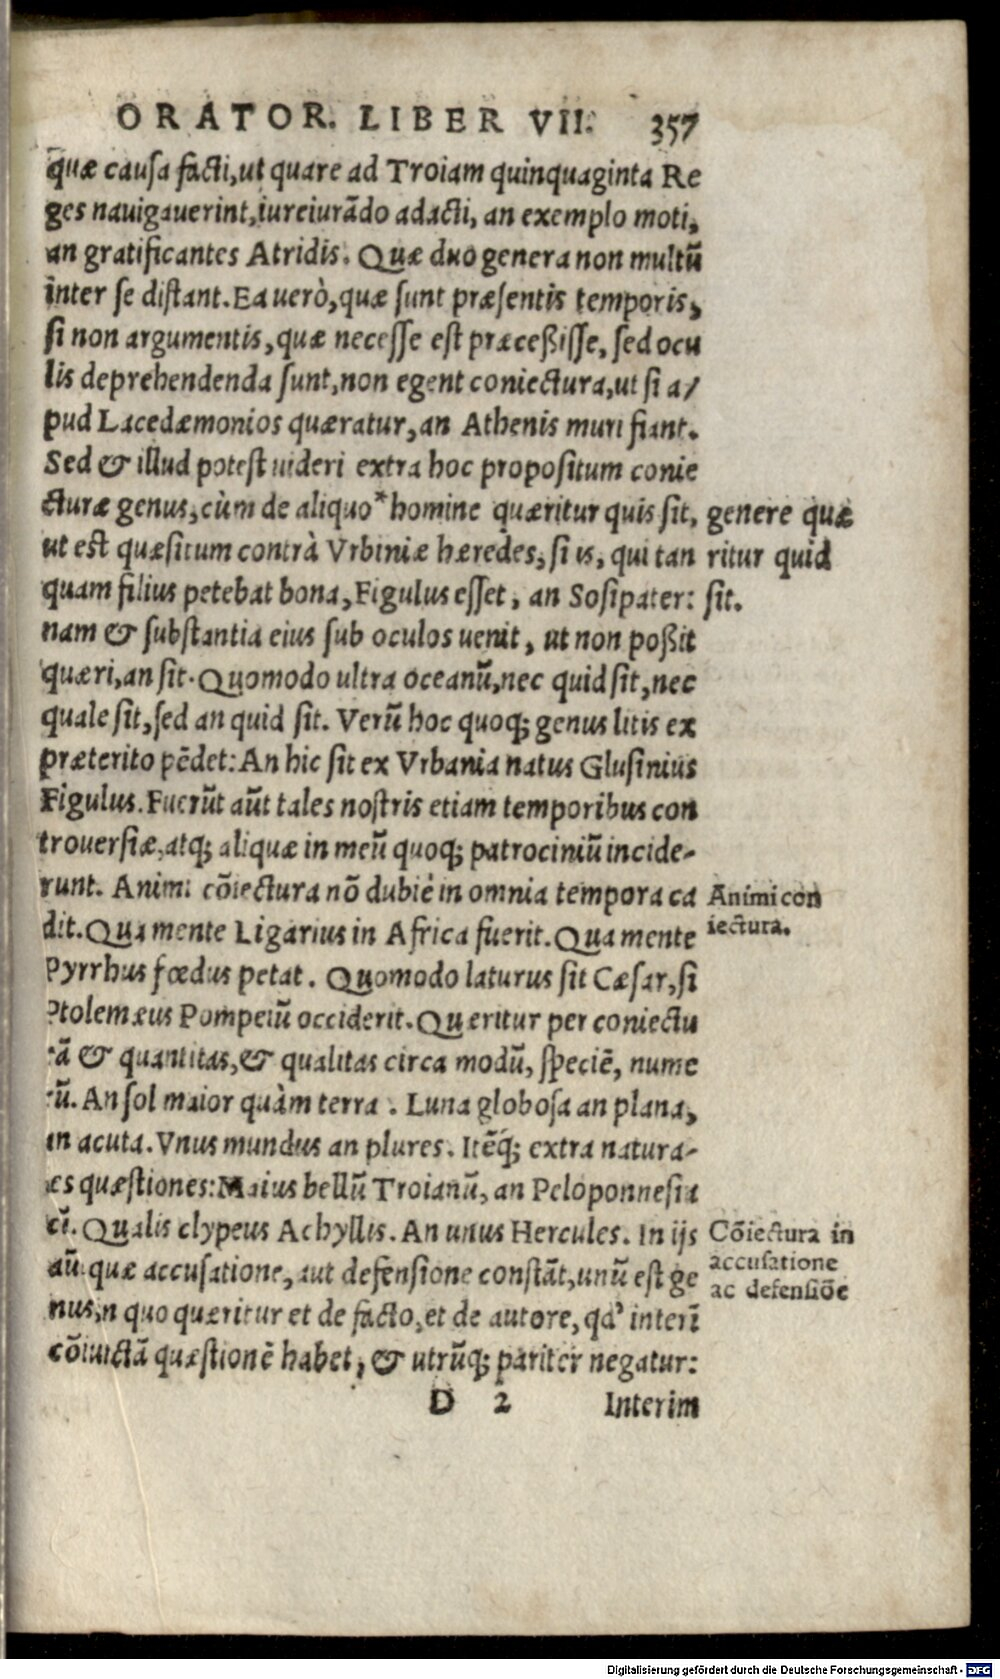 ORATOR. LIBER VII. 357
quæ causa facti, ut quare ad Troiam quinquaginta Re
ges nauigauerint, iureiurādo adacti, an exemplo moti,
an gratificantes Atridis. Quæ duo genera non multū
inter se distant. Ea uerò, quæ sunt præsentis temporis,
si non argumentis, quæ necesse est præceßisse, sed ocu
lis deprehendenda sunt, non egent coniectura, ut si a/
pud Lacedæmonios quæratur, an Athenis muri fiant.
Sed & illud potest uideri extra hoc propositum conie
cturæ genus, cùm de aliquo* homine quæritur quis sit,
genere quæ
ut est quæsitum contrà Vrbiniæ hæredes, si is, qui tan
ritur quid
quam filius petebat bona, Figulus esset, an Sosipater:
sit.
nam & substantia eius sub oculos uenit, ut non poßit
quæri, an sit. Quomodo ultra oceanū, nec quid sit, nec
quale sit, sed an quid sit. Verū hoc quoq; genus litis ex
præterito pēdet: An hic sit ex Vrbania natus Glusinius
Figulus. Fuerūt aūt tales nostris etiam temporibus con
trouersiæ, atq; aliquæ in meū quoq; patrociniū incide-
runt. Animi cōiectura nō dubiè in omnia tempora ca
Animi con
dit. Qua mente Ligarius in Africa fuerit. Qua mente
iectura.
Pyrrhus fœdus petat. Quomodo laturus sit Cæsar, si
Ptolemæus Pompeiū occiderit. Quæritur per coniectu
rā & quantitas, & qualitas circa modū, speciē, nume
rū. An sol maior quàm terra. Luna globosa an plana,
an acuta. Vnus mundus an plures. Itēq; extra natura-
les quæstiones: Maius bellū Troianū, an Peloponnesia
cū. Qualis clypeus Achyllis. An unus Hercules. In ijs
Cōiectura in
aūt quæ accusatione, aut defensione constāt, unū est ge
accusatione
ac defensiōe
nus, in quo quæritur et de facto, et de autore, qd' interī
cōiunctā quæstionē habet, & utrūq; pariter negatur:
D 2 Interim
Digitalisierung gefördert durch die Deutsche Forschungsgemeinschaft - DFG